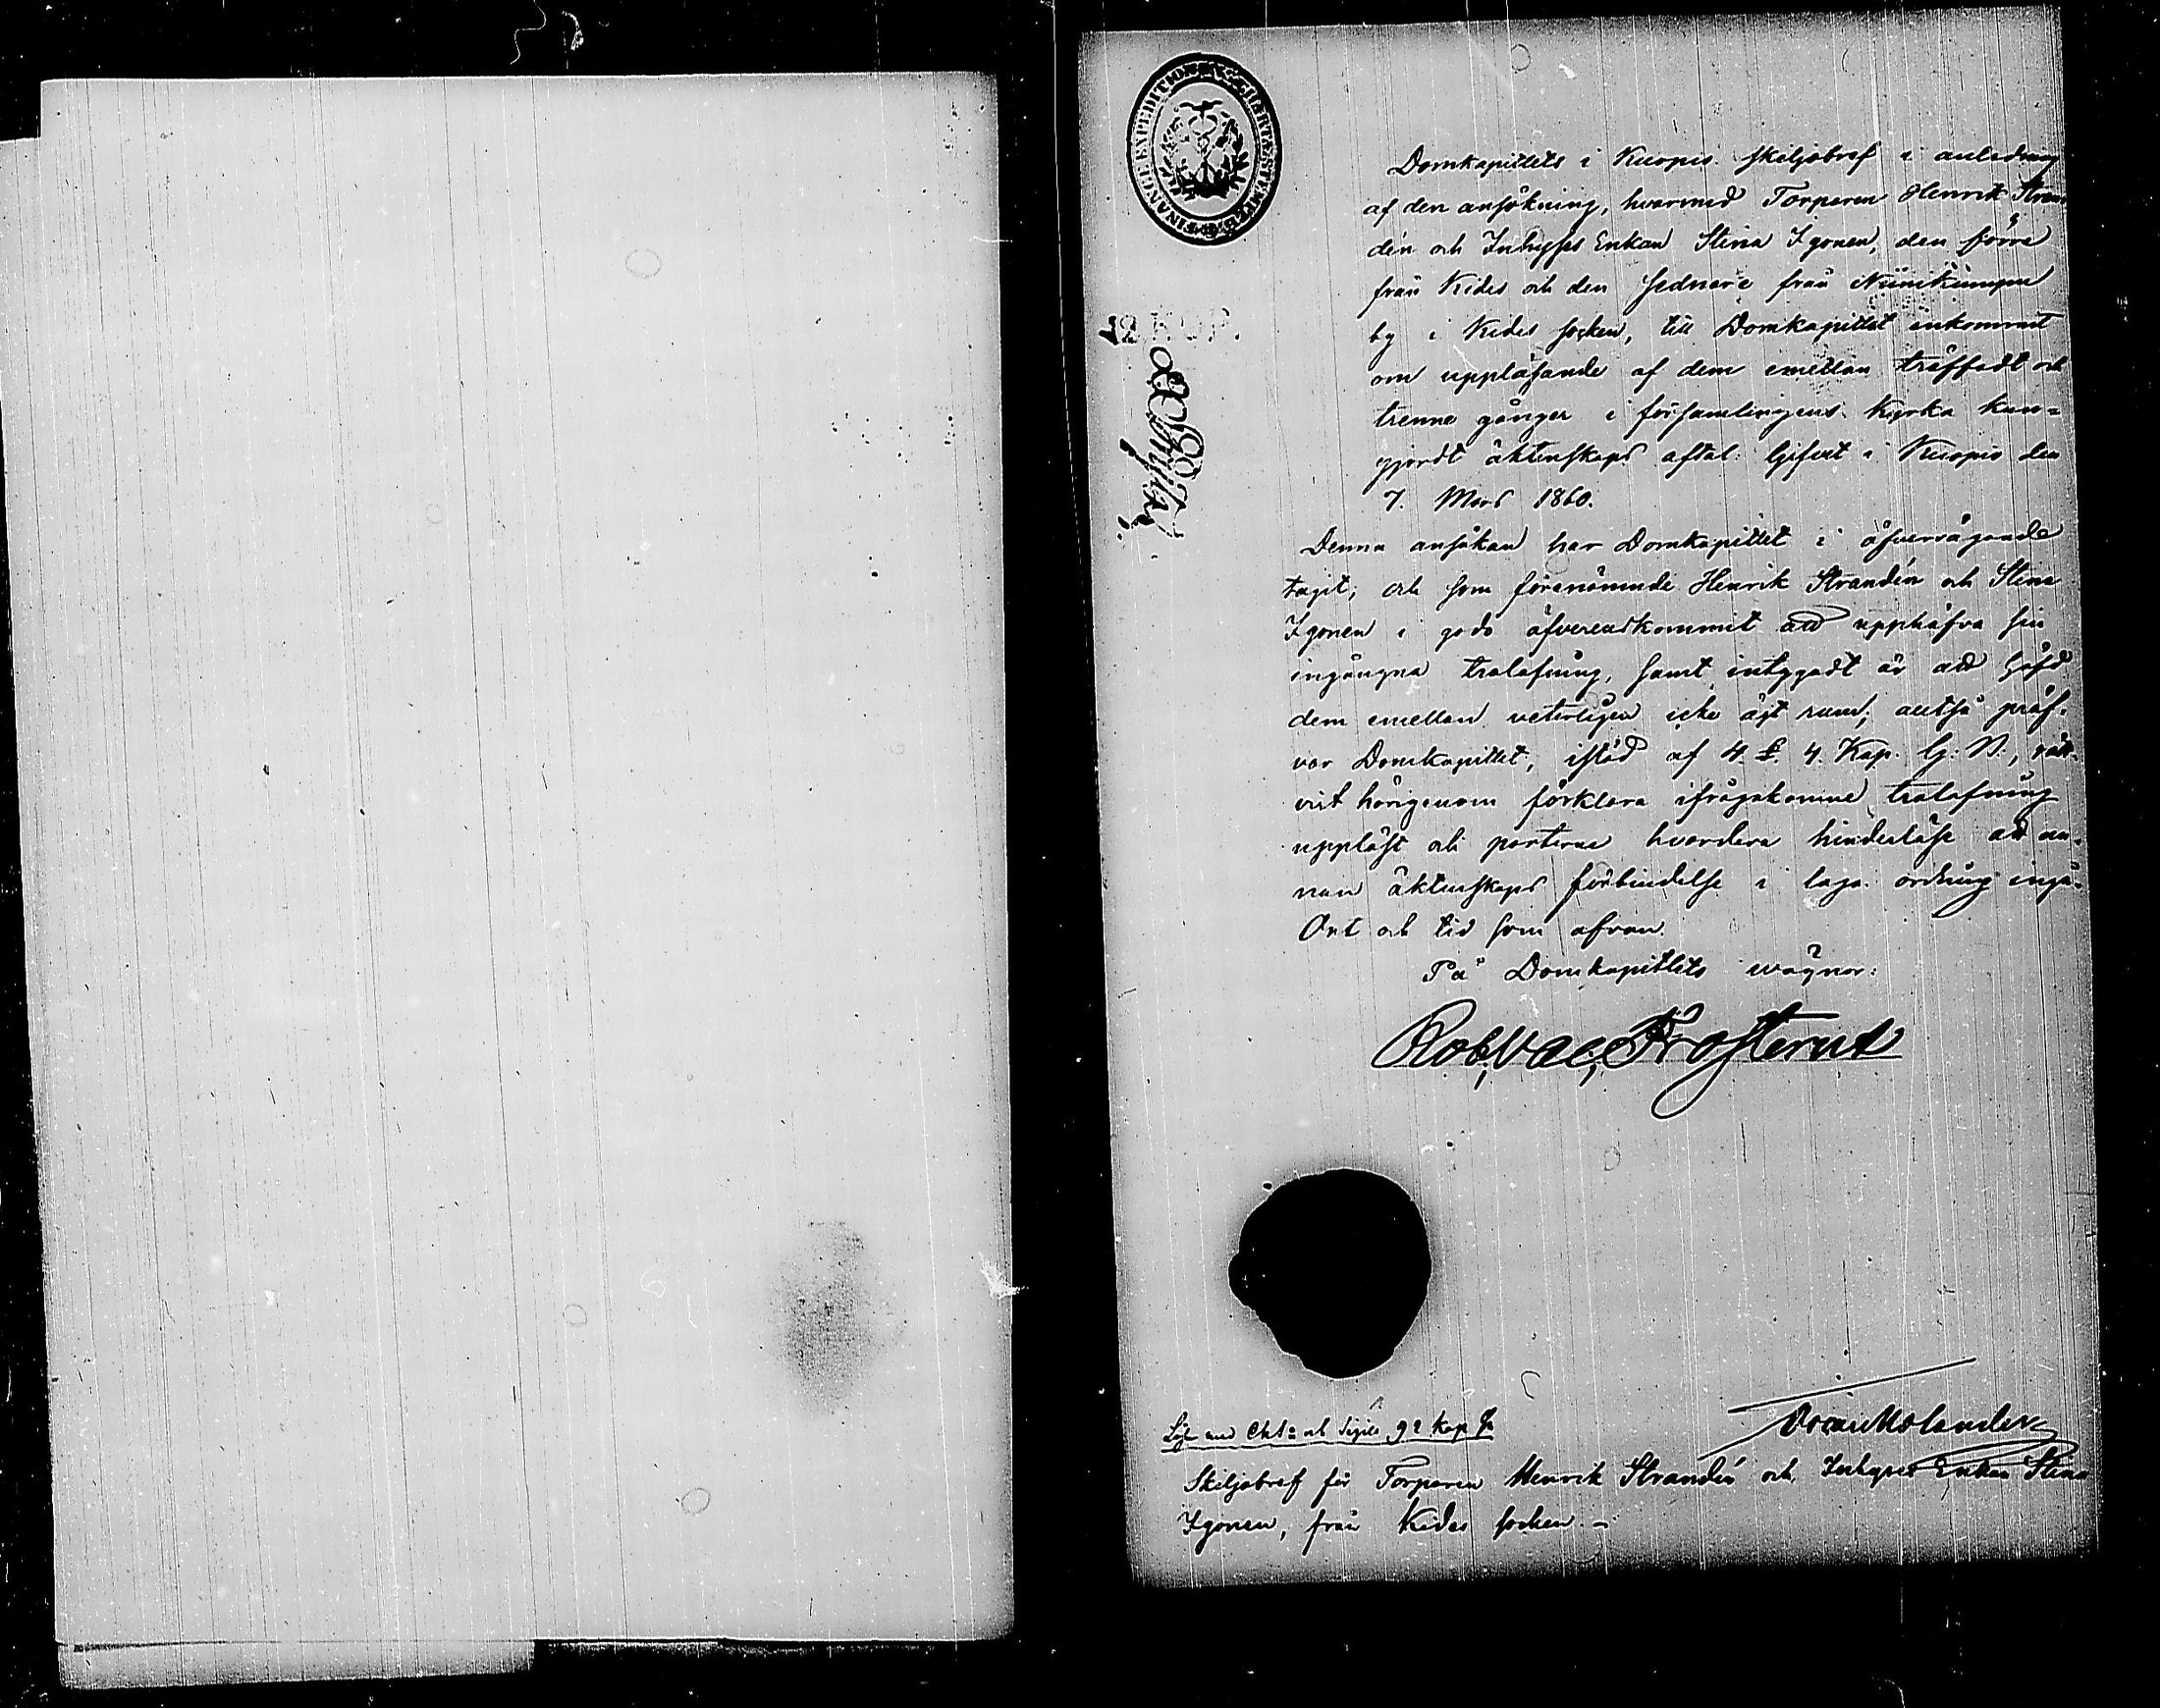 FINANCE EXPEDITION CHARTÆ STEMPEL
KOP.
Domkapitlets i Kuopio skiljobref i anledning
af den ansökning, hvarmed Torparen Henrik Stran-
dén och Inhyses Enkan Stina Igonen, den förre
från Kides och den sednare från Niinikumpu
by i Kides socken, till Domkapitlet inkommit
om upplösande af dem emellan träffadt och
trenne gånger i församlingens kyrka kun=
gjordt äktenskaps aftal. Gifvet i Kuopio den
7. Mars 1860.
Denna ansökan har Domkapitlet i öfvervägande
tagit; och som förenämnde Henrik Strandén och Stina
Igonen i godo öfverenskommit att upphäfva sin
ingångna trolofning, samt intygadt är att häfd
dem emellan veterligen icke ägt rum; alltså pröf-
var Domkapitlet, i stöd af 4. §. 4. Kap. G: B:, rätt-
vist härigenom förklara ifrågakomne trolofning
upplöst och parterne hvardera hinderlöse att an-
nan äktenskaps förbindelse i laga ordning ingå.
Ort och tid som ofvan.
På Domkapitlets vägnar:
Rob. Val. Frosterus
Oscar Molander
Lös'n med Cht= och Sigill 92 kop
Skiljobref för Torparen Henrik Strandén och Inhyses Enkan Stina
Igonen, från Kides socken. –